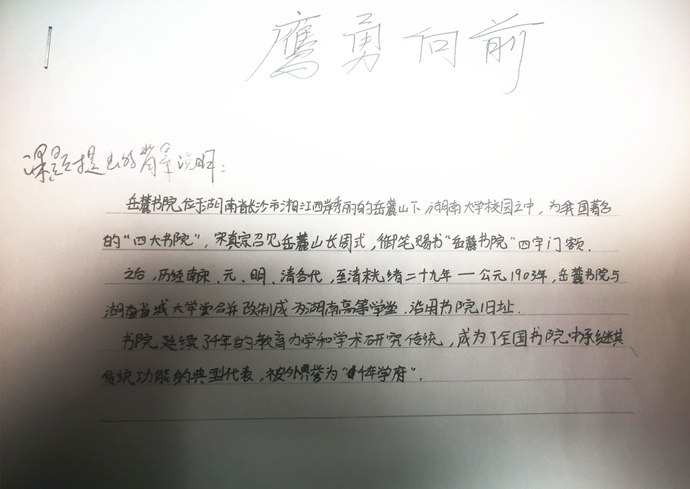 鹰勇向前
课题提出的背景说明：
岳麓书院位于湖南省长沙市湘江西岸秀丽的岳麓山下，湖南大学校园之中，为我国著名
的“四大书院”，宋真宗召见岳麓山长周式，御笔赐书“岳麓书院”四字门额．
之后，历经南宋、元、明、清各代，至清末光绪二十九年——公元1903年，岳麓书院与
湖南省城大学堂合并改制成为湖南高等学堂，沿用书院旧址．
书院延续了千年的教育办学和学术研究传统，成为了全国书院中承继其
传统功能的典型代表，被外界誉为“千年学府”．